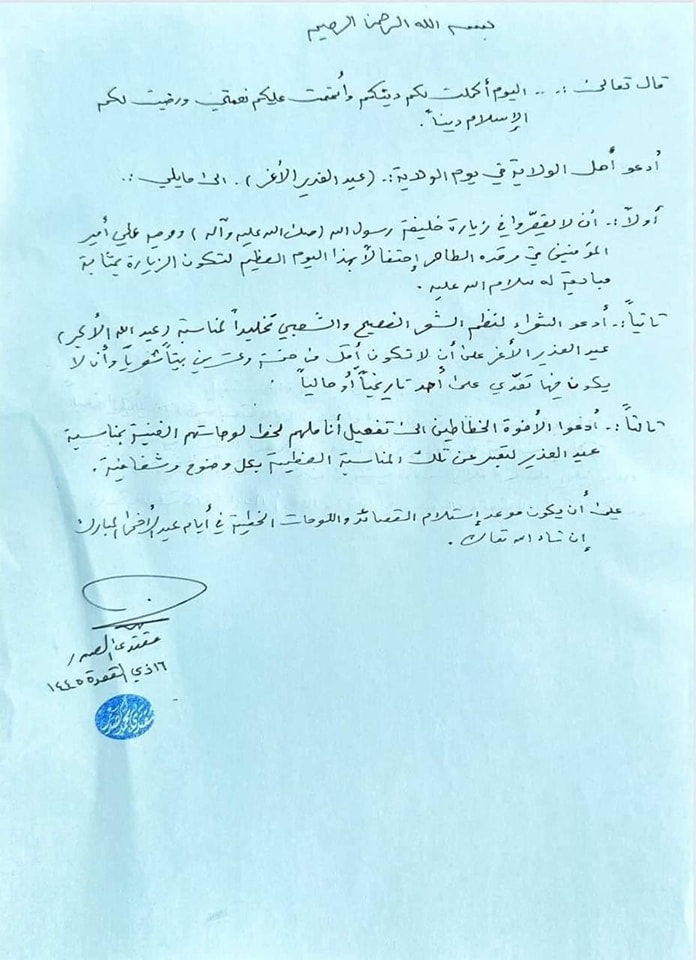 بسمه الله الرحمن الرحيم
قال تعالى :. .. اليوم أكملت لكم دينكم وأتممت عليكم نعمتي ورضيت لكم
الإسلام ديناً.
أدعو أهل الولاية في يوم الولاية :. (عيد الغدير الأغر). الى مايلي :.
أولاً :. أن لا يقصّروا في زيارة خليفة رسول الله (صلى الله عليه وآله) ووصيه علي أمير
المؤمنين في مرقده الطاهر إحتفالاً بهذا اليوم العظيم لتكون الزيارة بمثابة
مبايعة له سلام الله عليه .
ثانياً :. أدعو الشعراء لنظم الشعر الفصيح والشعبي تخليداً لمناسبة (عيد الله الأكبر)
عيد الغدير الأغر على أن لا تكون أقل من خمسة وعشرين بيتاً شعرياً وأن لا
يكون فيها تعدّي على أحد تاريخياً أو حالياً .
ثالثاً :. أدعوا الأخوة الخطاطين الى تفعيل أناملهم لخط لوحاتهم الفنية بمناسبة
عيد الغدير لتعبر عن تلك المناسبة العظيمة بكل وضوح وشفافية .
على أن يكون موعد إستلام القصائد واللوحات الخطية في أيام عيد الأضحى المبارك
إن شاء الله تعالى .
مقتدى الصدر
١٦ ذي القعدة ١٤٤٥